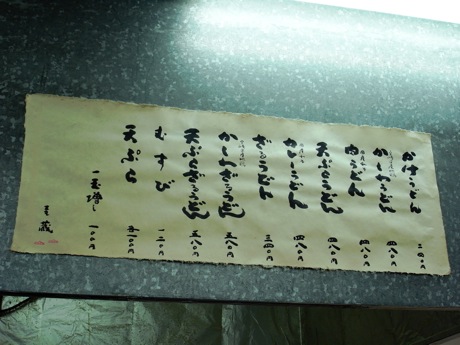 かけうどん 二四〇円
かしわうどん 四八〇円
肉うどん 四八〇円
天ぷらうどん 四八〇円
カレーうどん 四八〇円
ざるうどん 三四〇円
かしわざるうどん 五八〇円
天ぷらざるうどん 五八〇円
むすび 一二〇円
天ぷら 各一〇〇円
一玉増し 一〇〇円